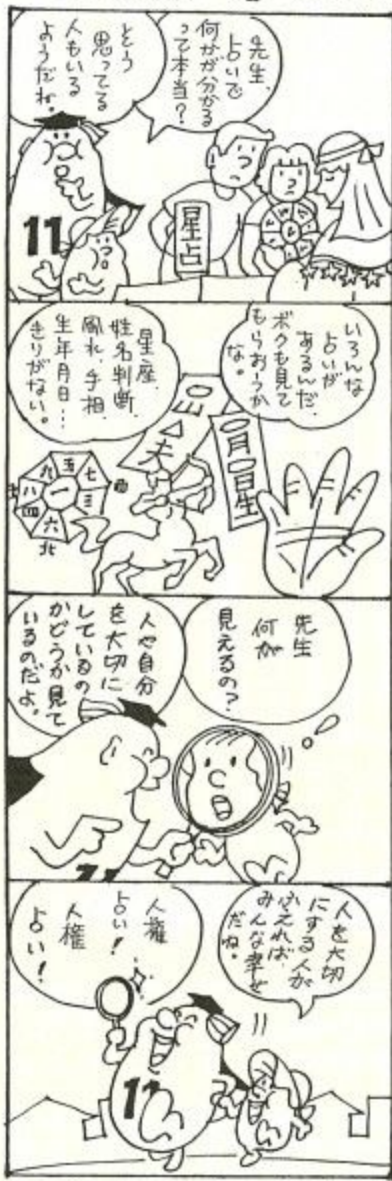 先生、
占いで
何かが分かる
って本当?
そう
思ってる
人もいる
ようだね。
11
星占
いろんな
占いが
あるんだ、
ボクも見て
もらおーうか
な。
星座、
姓名判断、
風水、手相、
生年月日…
きりがない。
〇山△夫
〇月〇日生
五
七
三
六
四
八
九
一
北
先生
何が
見えるの?
人や自分
を大切に
しているの
かどうか見て
いるのだよ。
人を大切
にする人が
ふえれば、
みんな幸せ
だね。
人権
占い!
人権
占い!
11